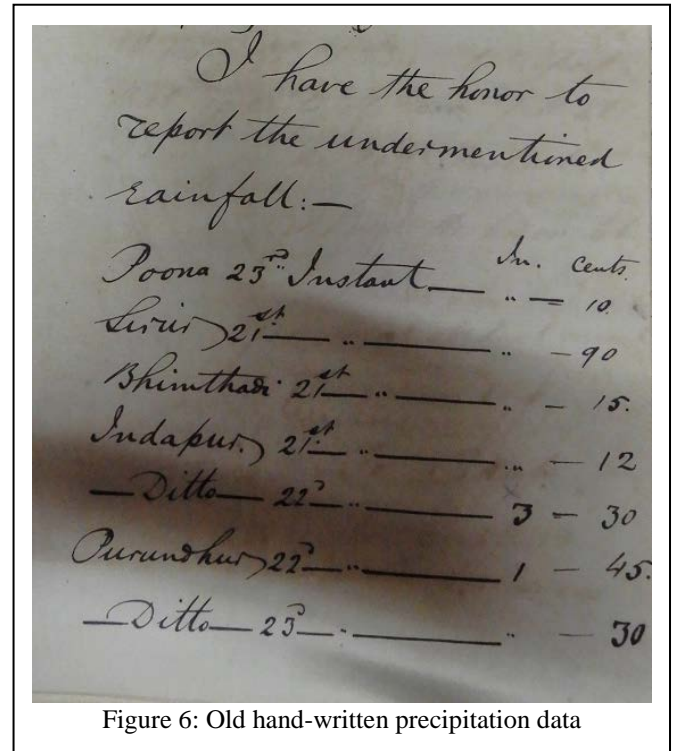 I have the honor to
report the undermentioned
rainfall:—
In. Cents.
Poona 23rd Instant — " — 10
Sirur 21st — " — " — 90
Bhimthadi 21st — " — " — 15.
Indapur. 21st — " — " — 12
— Ditto — 22d — " — 3 — 30
Purundhur 22d — " — 1 — 45.
— Ditto — 23d — " — " — 30
Figure 6: Old hand-written precipitation data